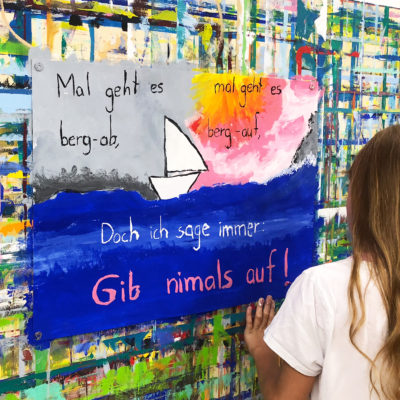 Mal geht es
berg-ab,
mal geht es
berg-auf,
Doch ich sage immer:
Gib nimals auf!